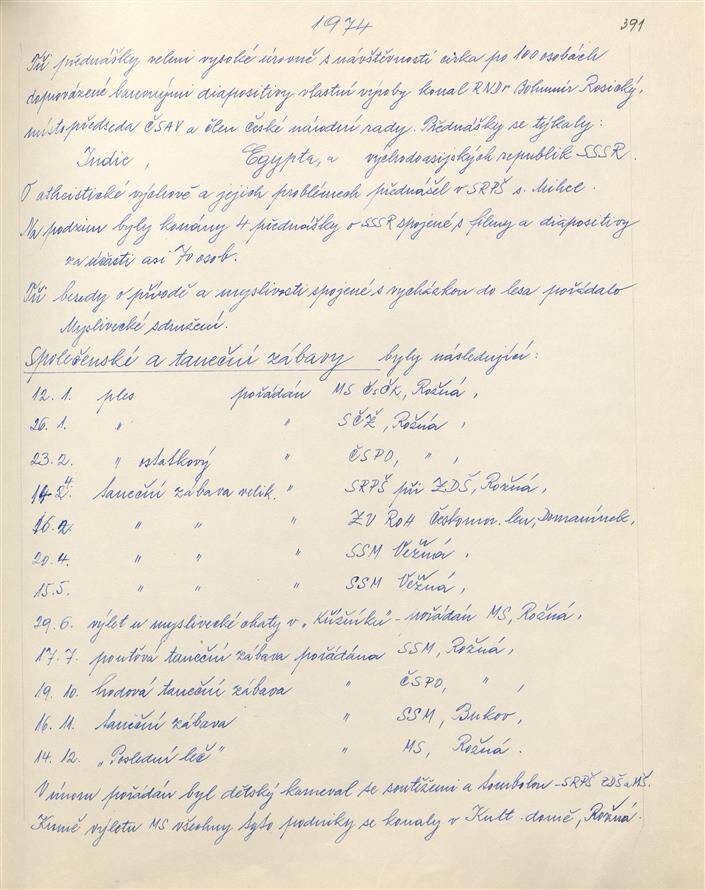 1974
391
Tři přednášky velmi vysoké úrovně s návštěvností cirka po 100 osobách
doprovázené barevnými diapositivy vlastní výroby konal RNDr Bohumír Rosický,
místopředseda ČSAV a člen České národní rady. Přednášky se týkaly:
Indie, Egypta, a východoasijských republik SSSR.
O atheistické výchově a jejich problémech přednášel v SRPŠ s.
Na podzim byly konány 4 přednášky o SSSR spojené s filmy a diapositivy
za účasti asi 70 osob.
Tři besedy o přírodě a myslivosti spojené s vycházkou do lesa pořádalo
Myslivecké sdružení.
Společenské a taneční zábavy byly následující:
12. 1. ples pořádán MS ČsČK, Rožná,
26. 1. " " SČŽ, Rožná,
23. 2. " ostatkový " ČSPO, ",
14. 4. taneční zábava velik. " SRPŠ při ZDŠ, Rožná,
16. " " " ZV ROH Českomor. len, Domanínek,
20. 4. " " " SSM Věžná,
15. 5. " " " SSM Věžná,
29. 6. výlet u myslivecké chaty v „ " - pořádán MS, Rožná,
17. 7. pouťová taneční zábava pořádána SSM, Rožná,
19. 10. hodová taneční zábava " ČSPO, ",
16. 11. taneční zábava " SSM, Bukov,
14. 12. „Poslední leč" " MS, Rožná.
V únoru pořádán byl dětský karneval se soutěžemi a tombolou - SRPŠ ZDŠ a MŠ.
Kromě výletu MS všechny tyto podniky se konaly v Kult. domě, Rožná.